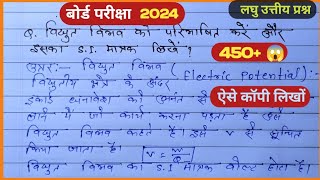 बोर्ड परीक्षा 2024
लघु उत्तीय प्रश्न
Q. विद्युत विभव को परिभाषित करें और
इसका S.I. मात्रक लिखें ?
450+
उत्तर:- विद्युत विभव (Electric Potential):-
विद्युतीय क्षेत्र के अंदर
इकाई धनावेश को अनंत से
लाने में जो कार्य करना पड़ता है उसे
ऐसे कॉपी लिखों
विद्युत विभव कहते है। इसे v से सूचित
किया जाता है। V = W/Q
विद्युत विभव का S.I मात्रक वोल्ट होता है।